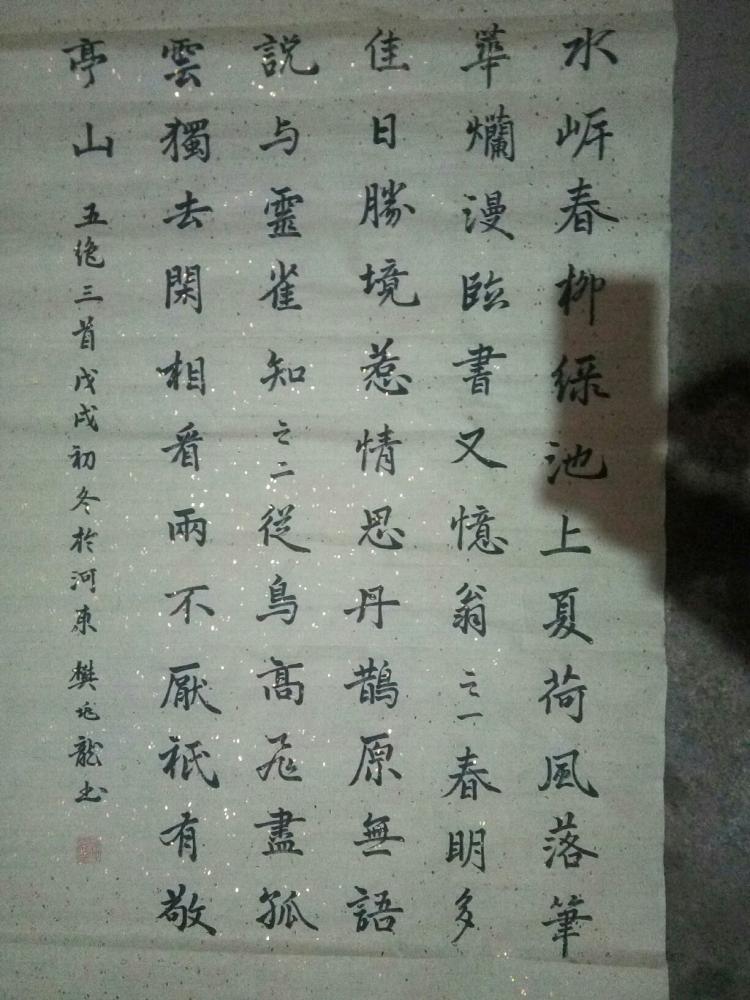 水岸春柳綠池上夏荷風落筆
華爛漫臨書又憶翁之一春明多
佳日勝境惹情思丹鵲原無語
説与靈雀知之二從鳥高飛盡孤
雲獨去閑相看兩不厭祇有敬
亭山
五絶三首戊戌初冬於河東樊兆龍书